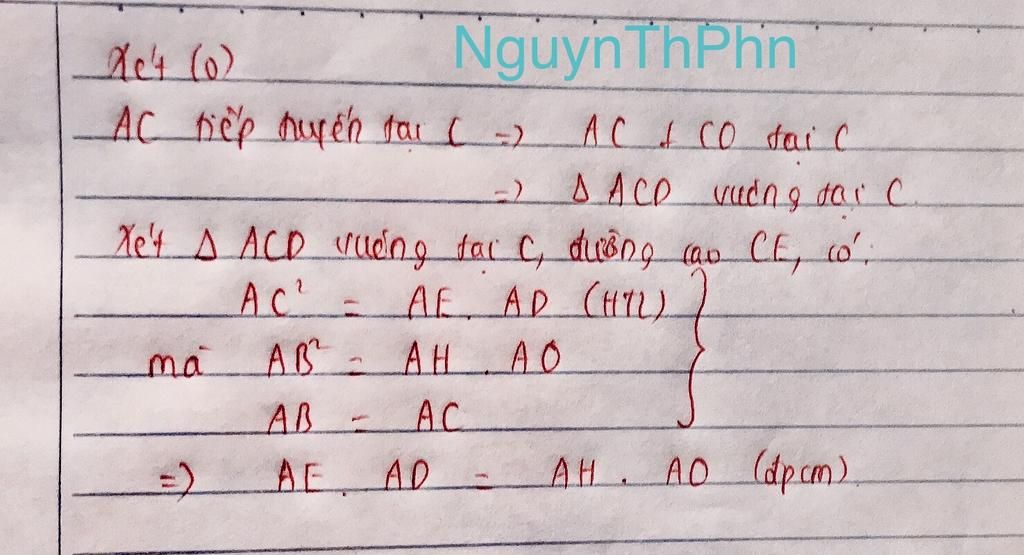 NguynThPhn
Xét (O)
AC tiếp tuyến tại C => AC ⊥ CO tại C
=> Δ ACD vuông tại C.
Xét Δ ACD vuông tại C, đường cao CE, có:
AC² = AE. AD (HTL)
mà AB² = AH . AO
AB = AC
=> AE. AD = AH . AO (đpcm)